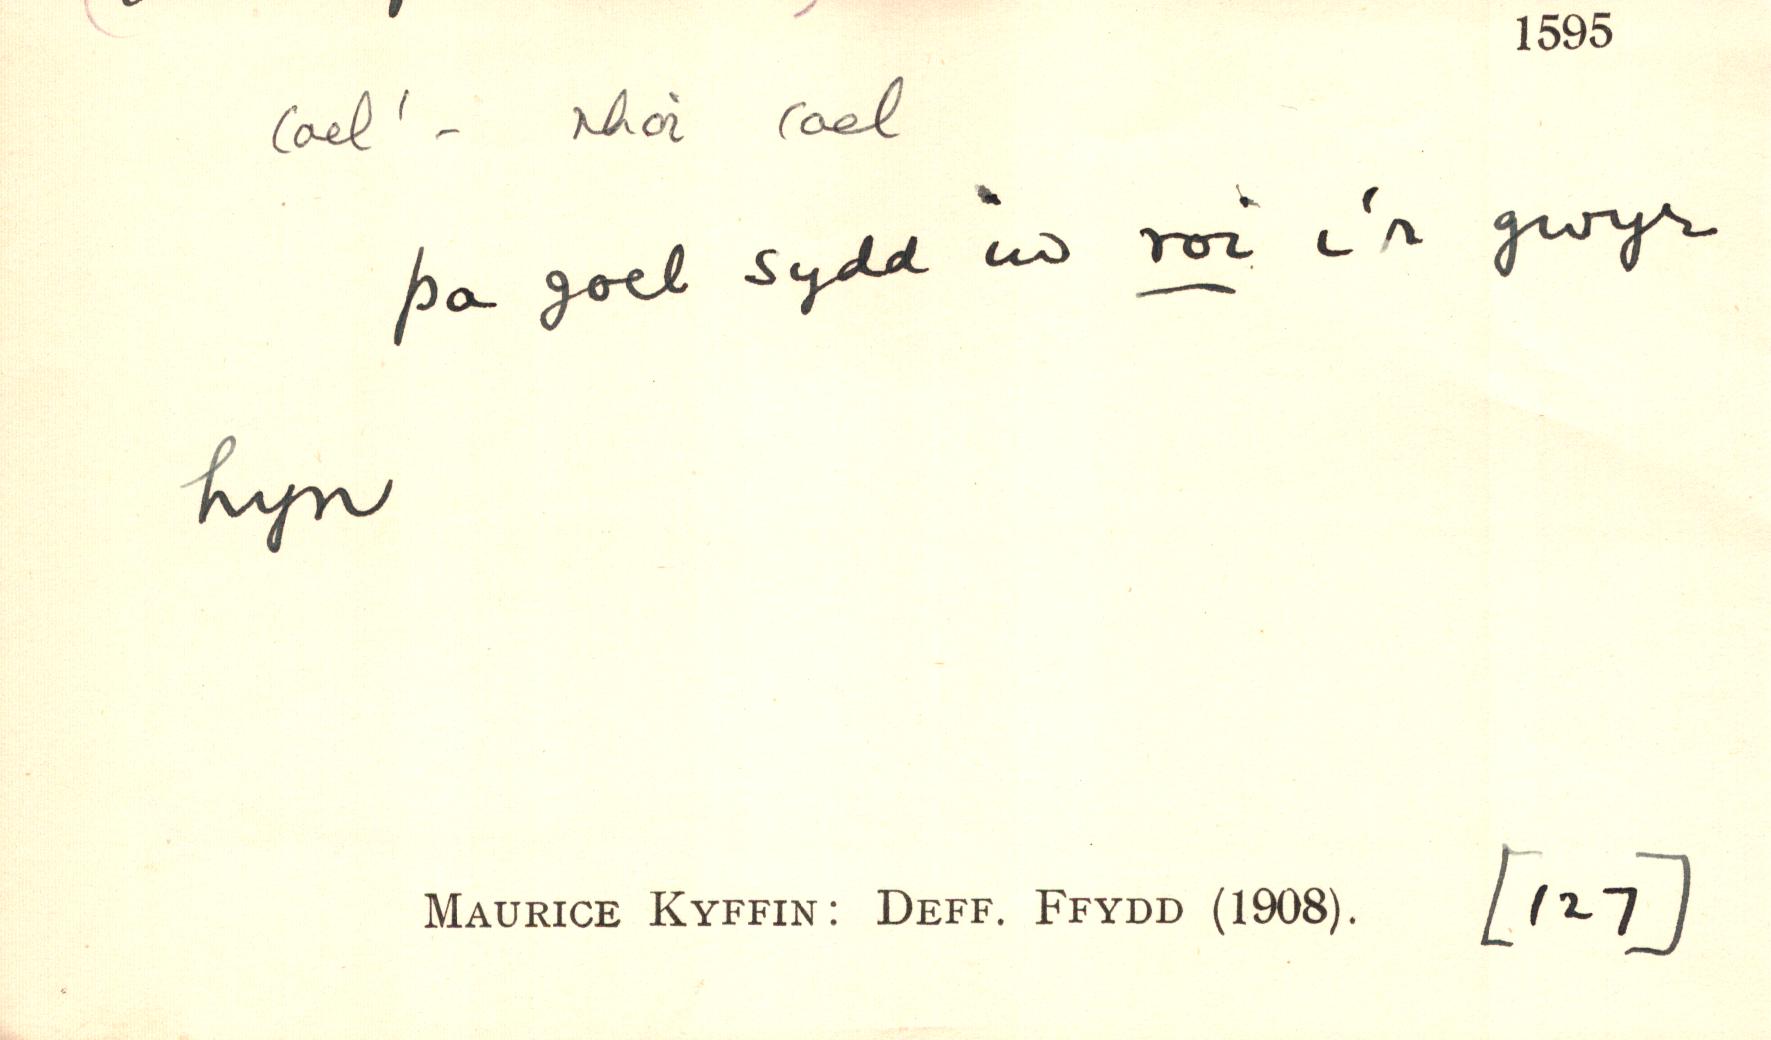 1595
coel' - rhoi coel
pa goel sydd iw roi i'r gwyr
hyn
MAURICE KYFFIN: DEFF. FFYDD (1908). [127]